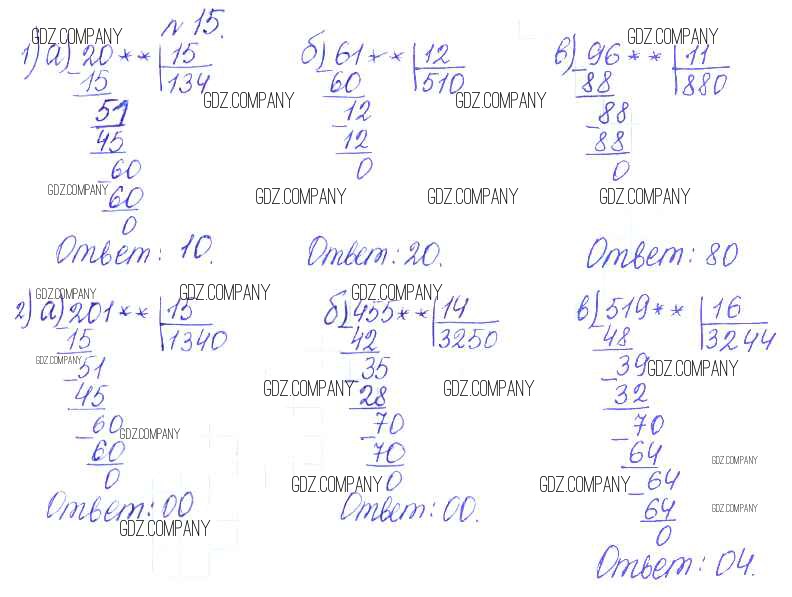 № 15.
GDZ.COMPANY GDZ.COMPANY GDZ.COMPANY
1) а) 20** | 15 б) 61** | 12 в) 96** | 11
15 | 134 60 | 510 88 | 880
GDZ.COMPANY GDZ.COMPANY
51 12 88
45 12 88
60 0 0
GDZ.COMPANY GDZ.COMPANY GDZ.COMPANY GDZ.COMPANY
60
0
Ответ: 10. Ответ: 20. Ответ: 80
GDZ.COMPANY GDZ.COMPANY GDZ.COMPANY
2) а) 201** | 15 б) 455** | 14 в) 519** | 16
15 | 1340 42 | 3250 48 | 3244
GDZ.COMPANY GDZ.COMPANY
51 35 39
45 28 32
GDZ.COMPANY GDZ.COMPANY
60 70 70
GDZ.COMPANY
60 70 64
GDZ.COMPANY
0 0 64
GDZ.COMPANY GDZ.COMPANY
Ответ: 00 Ответ: 00. 64
GDZ.COMPANY
GDZ.COMPANY
0
Ответ: 04.